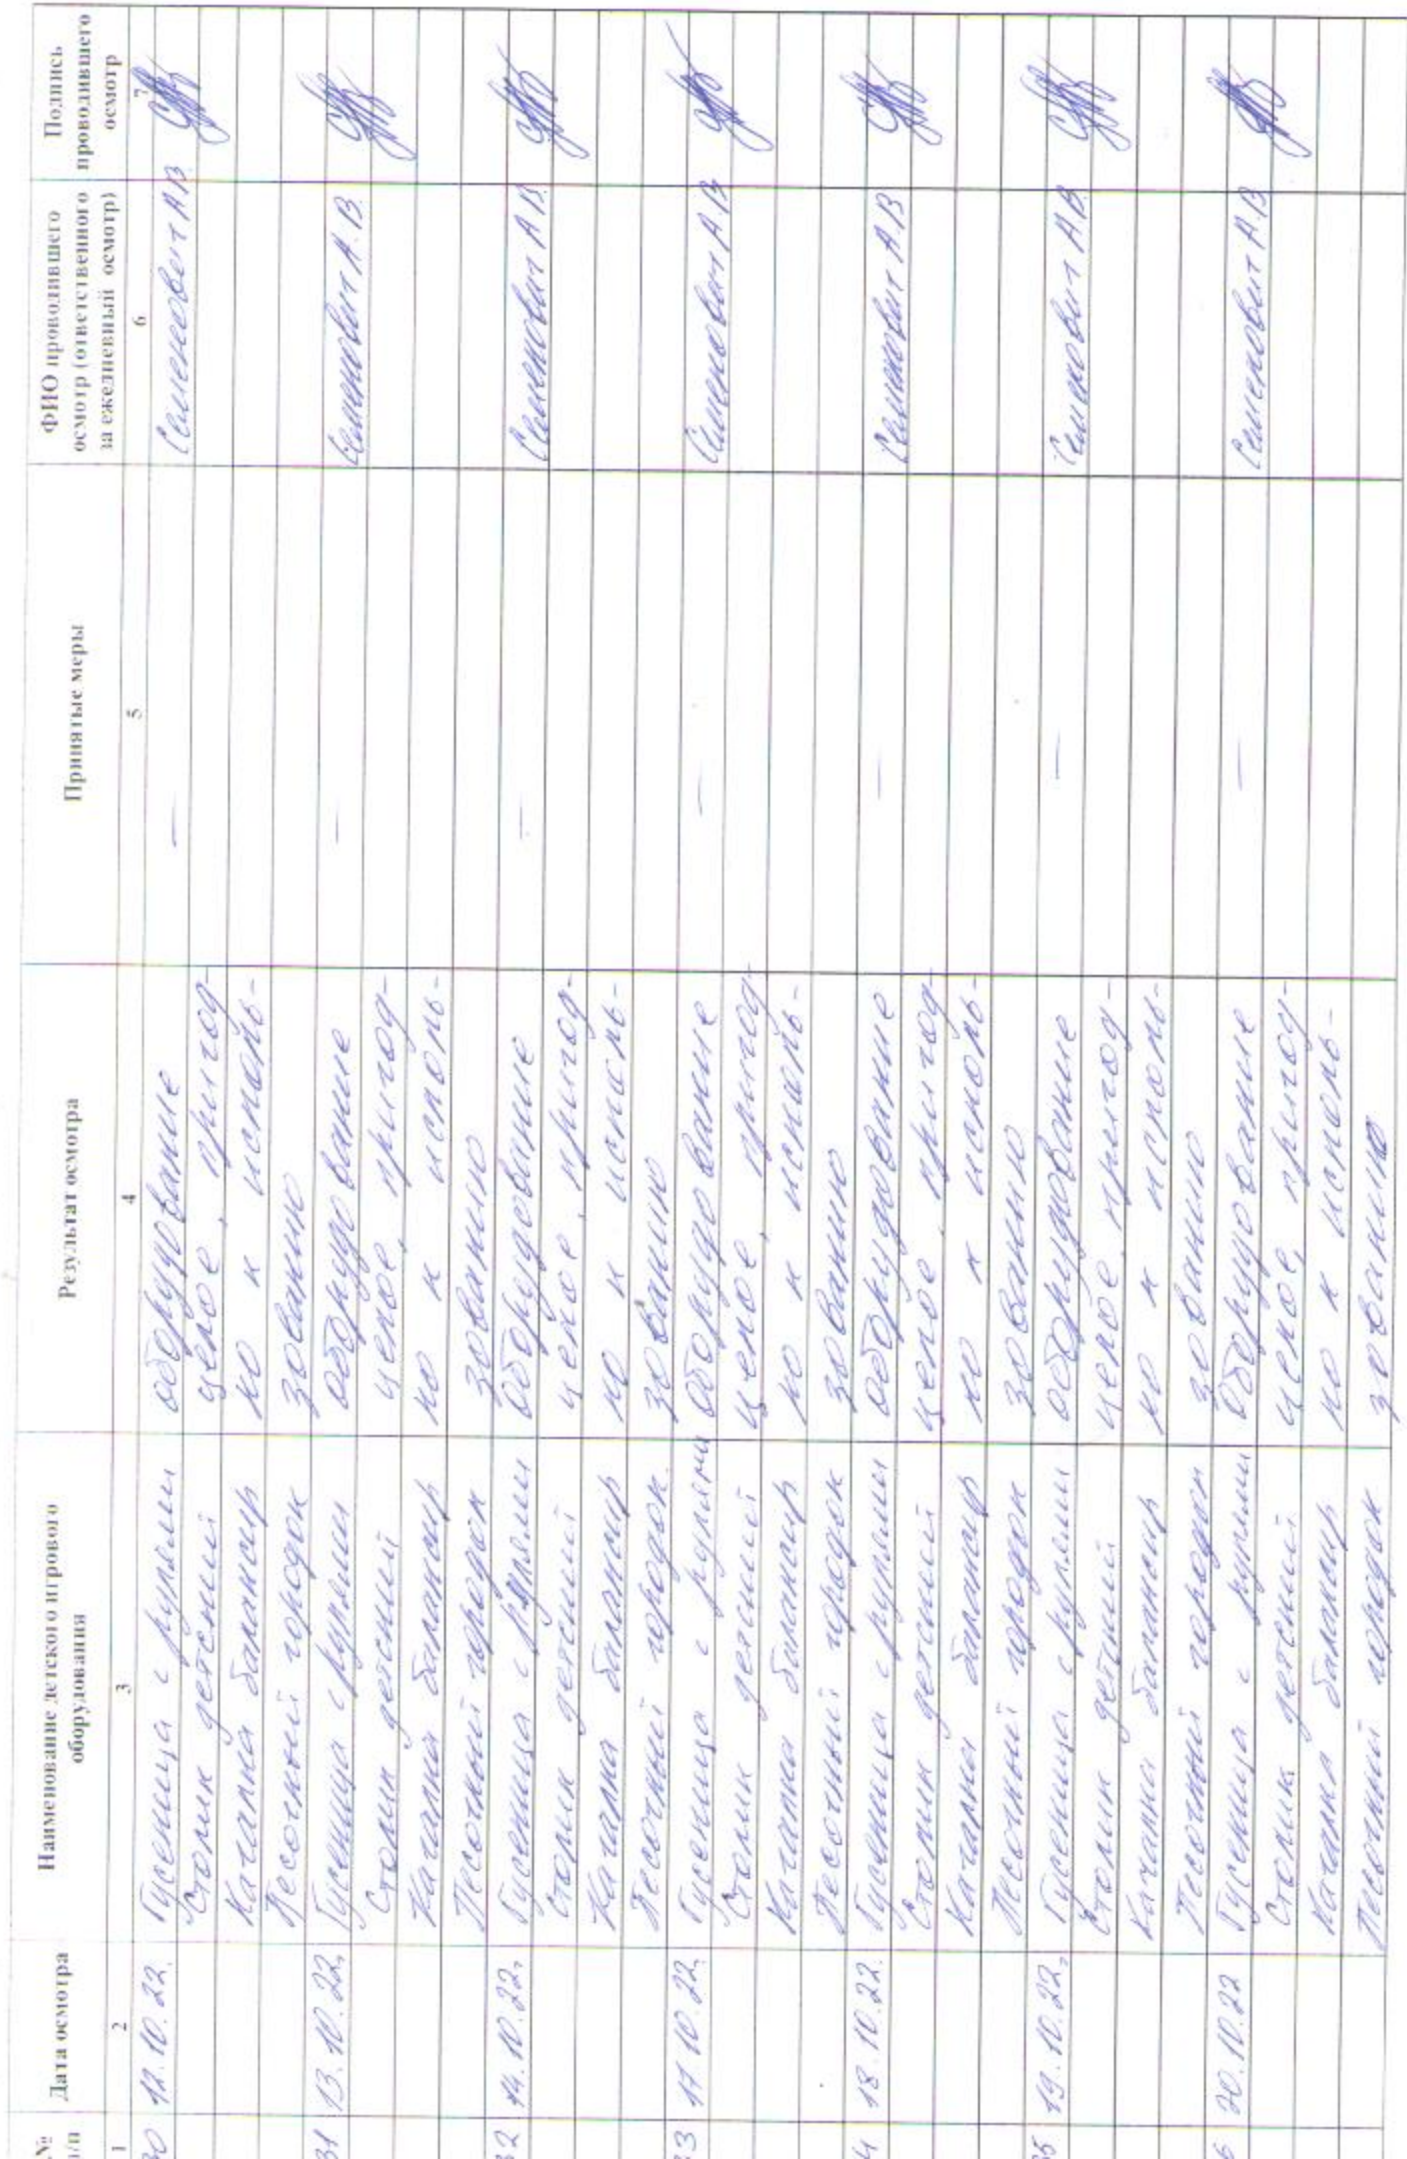 № п/п Дата осмотра Наименование детского игрового оборудования Результат осмотра Принятые меры ФИО проводившего осмотр (ответственного за ежедневный осмотр) Подпись проводившего осмотр
1 2 3 4 5 6 7
30 12.10.22. Гусеница с рулем оборудование — Семенович А.В.
Столик детский целое, пригод-
Качалка балансир но к исполь-
Песочный городок зованию
31 13.10.22. Гусеница с рулем оборудование — Семенович А.В.
Столик детский целое, пригод-
Качалка балансир но к исполь-
Песочный городок зованию
32 14.10.22. Гусеница с рулем оборудование — Семенович А.В.
Столик детский целое, пригод-
Качалка балансир но к исполь-
Песочный городок зованию
33 17.10.22. Гусеница с рулем оборудование — Семенович А.В
Столик детский целое, пригод-
Качалка балансир но к исполь-
Песочный городок зованию
4 18.10.22. Гусеница с рулем оборудование — Семенович А.В
Столик детский целое, пригод-
Качалка балансир но к исполь-
Песочный городок зованию
35 19.10.22. Гусеница с рулем оборудование — Семенович А.В.
Столик детский целое, пригод-
Качалка балансир но к исполь-
Песочный городок зованию
6 20.10.22 Гусеница с рулем Оборудование — Семенович А.В
Столик детский целое, пригод-
Качалка балансир но к исполь-
Песочный городок зованию